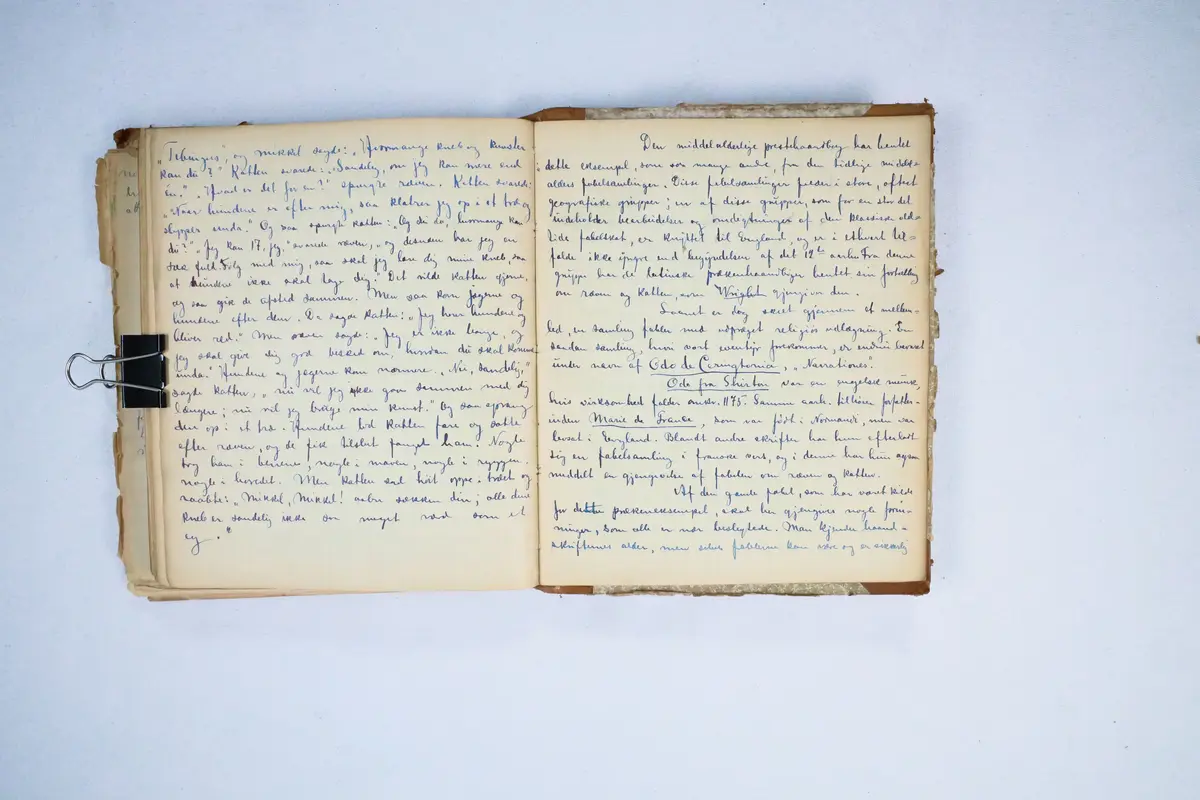 "Tebinges", og mikkel sagde: "Hvormange kneb og kunster
kan du?" Katten svarede: "Sandelig, om jeg kan mere end
én." "Hvad er det for en?" spurgte ræven. Katten svarede:
"Naar hundene er efter mig, saa klatrer jeg op i et træ og
slipper unda." Og saa spurgte katten: "Og du da, hvormange kan
du?" "Jeg kan 17, jeg," svarede ræven, "og desuden har jeg en
sæk fuld. Følg med mig, saa skal jeg lære dig mine kneb, saa
at hundene ikke skal tage dig." Det vilde katten gjerne,
og saa gik de afsted sammen. Men saa kom jægerne og
hundene efter dem. Da sagde katten: "Jeg hører hundene og
bliver ræd." Men ræven sagde: "Jeg er ikke bange, og
jeg skal give dig god besked om, hvordan du skal komme
unda." Hundene og jægerne kom nærmere. "Nei, sandelig,"
sagde katten, "nu vil jeg ikke gaa sammen med dig
længere; nu vil jeg bruge min kunst." Og saa sprang
den op i et træ. Hundene lod katten fare og satte
efter ræven, og de fik tilslut fanget ham. Nogle
tog ham i benene, nogle i maven, nogle i ryggen,
nogle i hovedet. Men katten sad høit oppe i træet og
raabte: "Mikkel, Mikkel! aabn sækken din; alle dine
kneb er sandelig ikke saa meget værd som et
eg."
Den middelalderlige prestehaandbog har hentet
dette eksempel, som saa mange andre, fra den tidlige middel-
alders fabelsamlinger. Disse fabelsamlinger falder i store, oftest
geografiske grupper; en af disse grupper, som for en stor del
indeholder bearbeidelser og omdigtninger af den klassiske old-
tids fabelskat, er knyttet til England, og er i ethvert til-
fælde ikke yngre end begyndelsen af det 12te aarh. Fra denne
gruppe har de latinske prækenhaandbøger hentet sin fortælling
om ræven og katten, som Wright gjengiver den.
Svanet er dog skeet gjennem et mellem-
led, en samling fabler med udpræget religiøs udlægning. En
saadan samling, hvori vort eventyr forekommer, er endnu bevaret
under navn af Odo de Ceringtonia, "Narrationes".
Odo fra Shirton var en engelsk munk,
hvis virksomhed falder omkr. 1175. Samme aarh. tilhører forfatter-
inden Marie de France, som var født i Normandi, men var
bosat i England. Blandt andre skrifter har hun efterladt
sig en fabelsamling i franske vers, og i denne har hun ogsaa
meddelt en gjengivelse af fabelen om ræven og katten.
Af den gamle fabel, som har været kilde
for dette prækeneksempel, skal her gjengives nogle form-
ninger, som alle er nær beslegtede. Man kjender haand-
skrifternes alder, men selve fablerne kan være og er